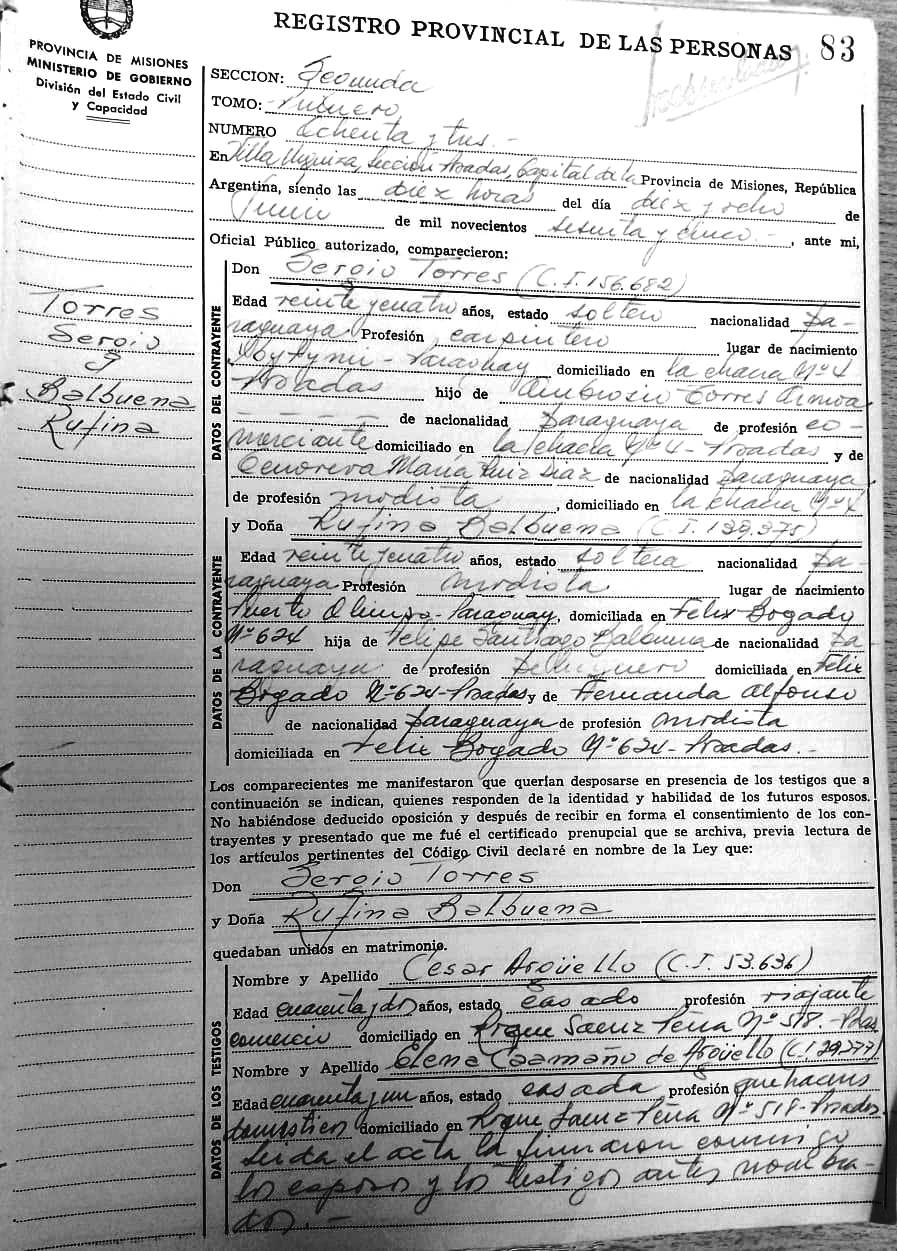 REGISTRO PROVINCIAL DE LAS PERSONAS 83
PROVINCIA DE MISIONES
MINISTERIO DE GOBIERNO
División del Estado Civil
y Capacidad
SECCION: Segunda
TOMO: Primero
NUMERO Ochenta y tres.-
En Villa Urquiza, Sección Posadas, Capital de la Provincia de Misiones, República
Argentina, siendo las diez horas del día diez y ocho de
Junio de mil novecientos sesenta y cinco.-, ante mi,
Oficial Público autorizado, comparecieron:
Torres
Sergio
y
Balbuena
Rufina
DATOS DEL CONTRAYENTE
Don Sergio Torres (C.I. 156.682)
Edad veinte y cuatro años, estado soltero nacionalidad Pa-
raguaya Profesión carpintero lugar de nacimiento
Paraguay domiciliado en la chacra Nº 4
Posadas hijo de Ambrosio Torres
de nacionalidad Paraguaya de profesión co-
merciante domiciliado en la chacra Nº 4 - Posadas y de
María Ruiz Diaz de nacionalidad Paraguaya
de profesión modista, domiciliado en la chacra Nº 4
DATOS DE LA CONTRAYENTE
y Doña Rufina Balbuena (C.I. 139.375)
Edad veinte y cuatro años, estado soltera nacionalidad Pa-
raguaya Profesión modista lugar de nacimiento
Puerto Olimpo - Paraguay, domiciliada en Felix Bogado
Nº 624 hija de Felipe Santiago Balbuena de nacionalidad Pa-
raguaya de profesión Peluquero domiciliado en Felix
Bogado Nº 624 - Posadas y de Fernanda Alfonso
de nacionalidad Paraguaya de profesión modista
domiciliada en Felix Bogado Nº 624 - Posadas.-
Los comparecientes me manifestaron que querían desposarse en presencia de los testigos que a
continuación se indican, quienes responden de la identidad y habilidad de los futuros esposos.
No habiéndose deducido oposición y después de recibir en forma el consentimiento de los con-
trayentes y presentado que me fué el certificado prenupcial que se archiva, previa lectura de
los artículos pertinentes del Código Civil declaré en nombre de la Ley que:
Don Sergio Torres
y Doña Rufina Balbuena
quedaban unidos en matrimonio.
DATOS DE LOS TESTIGOS
Nombre y Apellido Cesar Argüello (C.I. 53.636)
Edad cuarenta y dos años, estado casado profesión viajante
comercio domiciliado en Roque Saenz Peña Nº 518.- Pdas
Nombre y Apellido Elena Caamaño de Argüello (C.I 29.277)
Edad cuarenta y un años, estado casada profesión quehaceres
domésticos domiciliado en Roque Saenz Peña Nº 518 - Posadas
Leida el acta la firmaron conmigo
los esposos y los testigos antes nombra-
dos.-